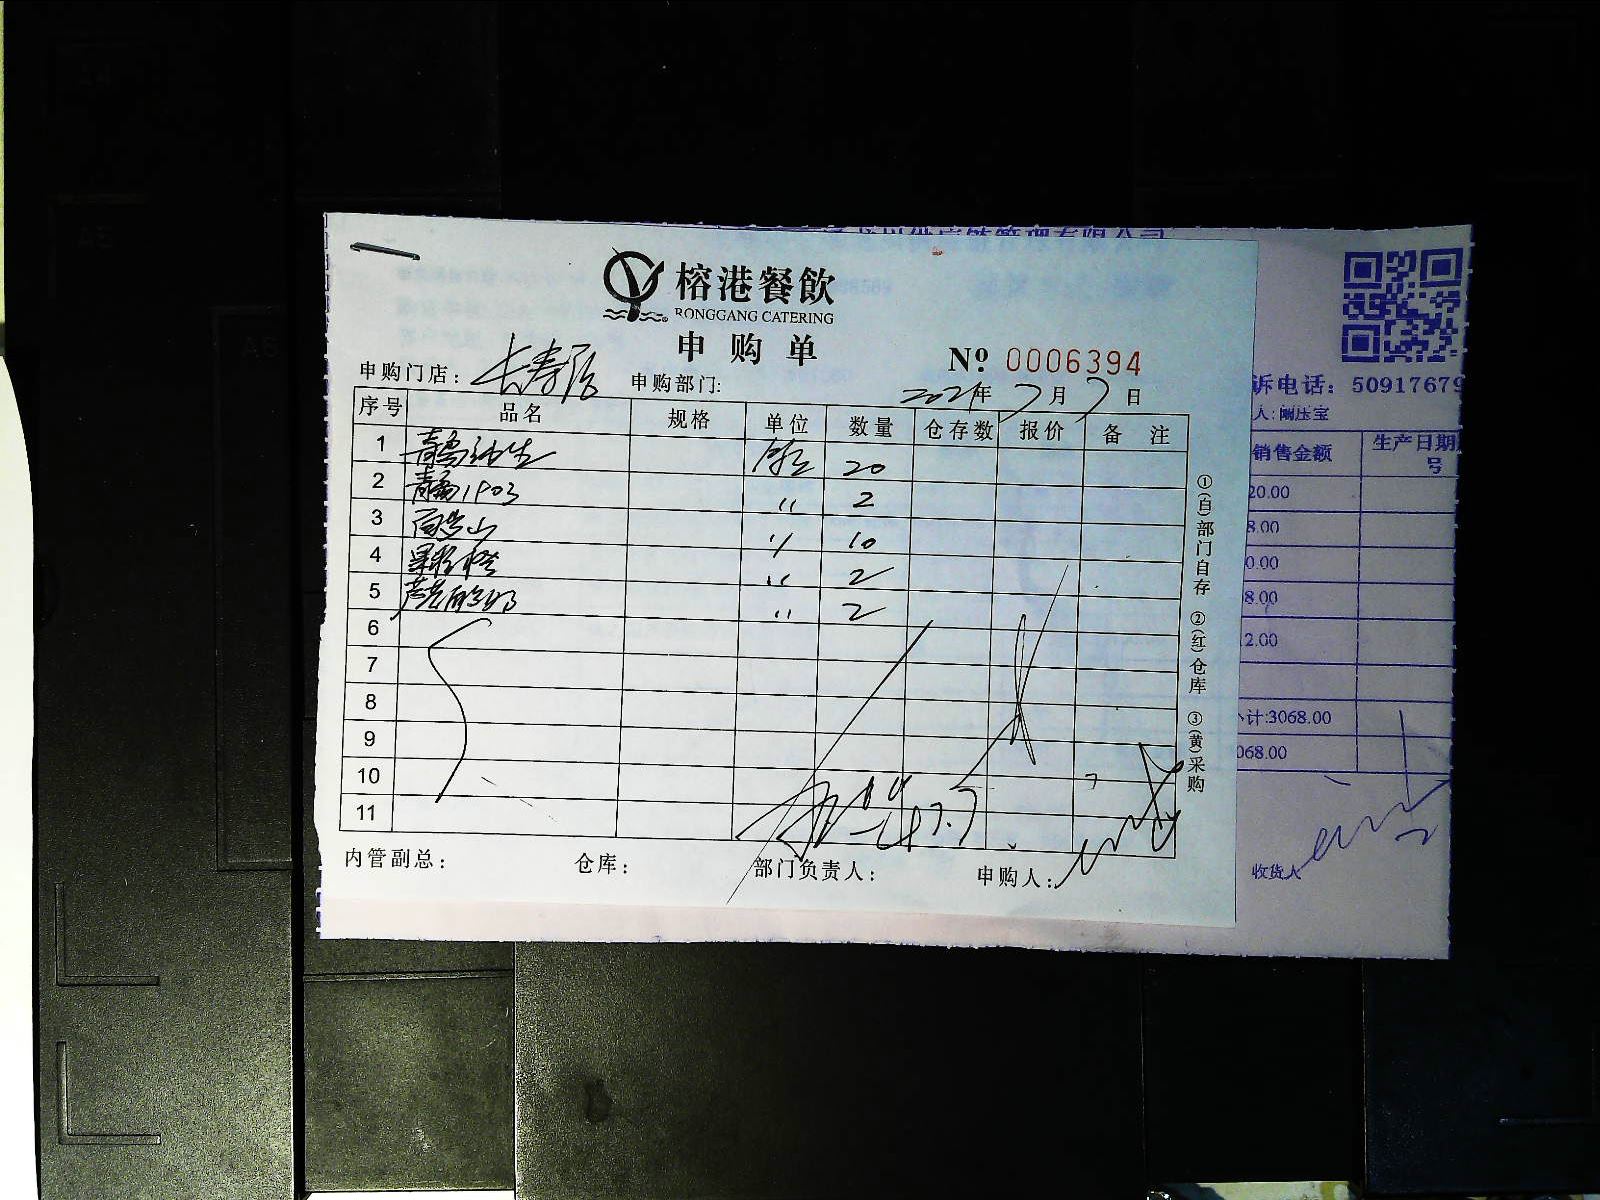 榕港餐飲
RONGGANG CATERING
申购单
Nº 0006394
申购门店: 长寿路 申购部门: 2021年 7月 7日
序号 品名 规格 单位 数量 仓存数 报价 备注
1 青岛纯生 箱 20
2 青岛1903 〃 2
3 〃 10
4 果粒橙 〃 2
5 〃 2
6
7
8
9
10
11
7.7
内管副总: 仓库: 部门负责人: 申购人:
①(白)部门自存 ②(红)仓库 ③(黄)采购
诉电话: 50917679
人: 阚压宝
销售金额 生产日期 号
20.00
8.00
0.00
8.00
2.00
小计:3068.00
068.00
收货人
A5
A6